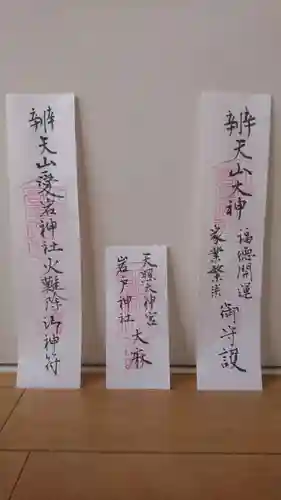 天山愛宕神社火難除御神符
天照大神宮
岩戸神社
大麻
天山大神
福徳開運
家業繁栄
御守護